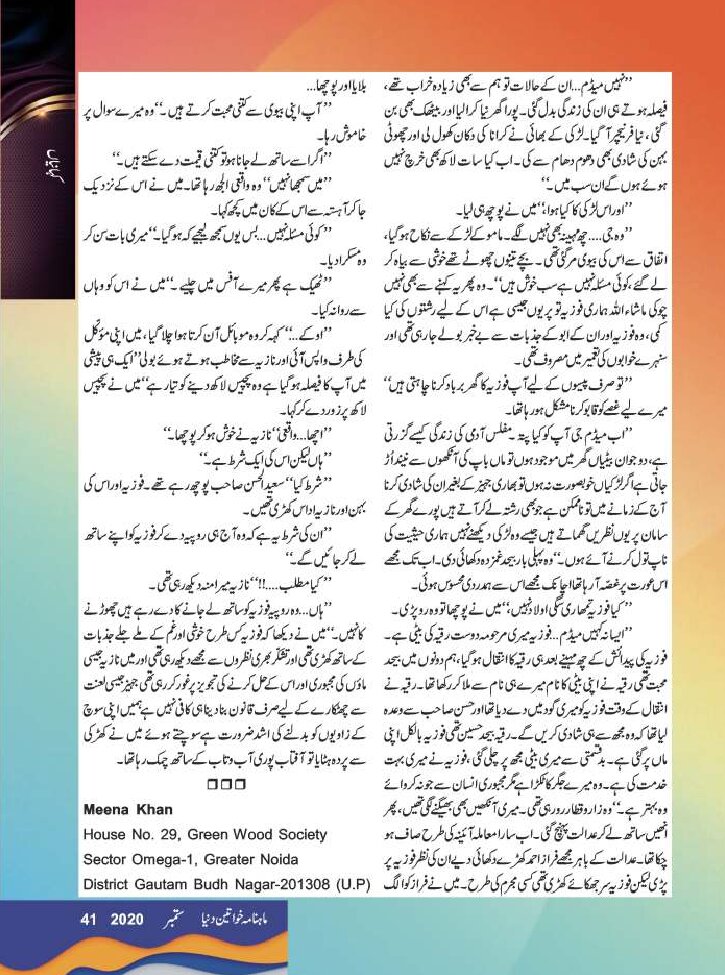 کہانیاں
’’نہیں میڈم...ان کے حالات تو ہم سے بھی زیادہ خراب تھے،
فیصلہ ہوتے ہی ان کی زندگی بدل گئی۔ پورا گھر نیا کرالیا اور بیٹھک بھی بن
گئی، نیا فرنیچر آ گیا۔ لڑکی کے بھائی نے کرانا کی دکان کھول لی اور چھوٹی
بہن کی شادی بھی دھوم دھام سے کی۔ اب کیا سات لاکھ بھی خرچ نہیں
ہوئے ہوں گے ان سب میں۔‘‘
’’اور اس لڑکی کا کیا ہوا‘‘، میں نے پوچھ ہی لیا۔
’’وہ جی.... چھ مہینہ بھی نہیں لگے۔ ماموں کے لڑکے سے نکاح ہو گیا،
اتفاق سے اس کی بیوی مر گئی تھی۔ بچے تینوں چھوٹے تھے خوشی سے بیاہ کر
لے گئے، کوئی مسئلہ نہیں ہے سب خوش ہیں‘‘۔ وہ پھر یہ کہنے سے بھی نہیں
چوکی ماشاء اللہ ہماری فوزیہ تو پریوں جیسی ہے اس کے لیے رشتوں کی کیا
کمی، وہ فوزیہ اور ان کے ابو کے جذبات سے بے خبر بولے جا رہی تھی اور
سنہرے خوابوں کی تعبیر میں مصروف تھی۔
’’تو صرف پیسوں کے لیے آپ فوزیہ کا گھر برباد کرنا چاہتی ہیں‘‘
میرے لیے غصے کو قابو کرنا مشکل ہو رہا تھا۔
’’اب میڈم جی آپ کو کیا پتہ۔ مفلس آدمی کی زندگی کیسے گزرتی
ہے، دو جوان بیٹیاں گھر میں موجود ہوں تو ماں باپ کی آنکھوں سے نیند اُڑ
جاتی ہے اگر لڑکیاں خوبصورت نہ ہوں تو بھاری جہیز کے بغیر ان کی شادی کرنا
آج کے زمانے میں تو ناممکن ہے جو بھی رشتہ لے کر آتے ہیں پورے گھر کے
سامان پر یوں نظریں گھماتے ہیں جیسے وہ لڑکی دیکھنے نہیں ہماری حیثیت کی
ناپ تول کرنے آئے ہوں۔‘‘ وہ پہلی بار بیحد غمزدہ دکھائی دی۔ اب تک مجھے
اس عورت پر غصہ آ رہا تھا اچانک مجھے اس سے ہمدردی محسوس ہوئی۔
’’کیا فوزیہ تمھاری سگی اولاد نہیں‘‘، میں نے پوچھا تو وہ رو پڑی۔
’’ایسا نہ کہیں میڈم...فوزیہ میری مرحومہ دوست رقیہ کی بیٹی ہے۔
فوزیہ کی پیدائش کے چھ مہینے بعد ہی رقیہ کا انتقال ہو گیا، ہم دونوں میں بیحد
محبت تھی رقیہ نے اپنی بیٹی کا نام میرے ہی نام سے ملا کر رکھا تھا۔ رقیہ نے
انتقال کے وقت فوزیہ کو میری گود میں دے دیا تھا اور حسن صاحب سے وعدہ
لیا تھا کہ وہ مجھ سے ہی شادی کریں گے۔ رقیہ بیحد حسین تھی فوزیہ بالکل اپنی
ماں پر گئی ہے۔ بدقسمتی سے میری بیٹی مجھ پر چلی گئی، فوزیہ نے میری بہت
خدمت کی ہے۔ وہ میرے جگر کا ٹکڑا ہے مگر مجبوری انسان سے جو نہ کروائے
وہ بہتر ہے۔‘‘ وہ زار و قطار رو رہی تھی۔ میری آنکھیں بھی بھیگنے لگی تھیں، پھر
انھیں ساتھ لے کر عدالت پہنچ گئی۔ اب سارا معاملہ آئینہ کی طرح صاف ہو
چکا تھا۔ عدالت کے باہر مجھے فراز احمد کھڑے دکھائی دیے ان کی نظر فوزیہ پر
پڑی لیکن فوزیہ سر جھکائے کھڑی تھی کسی مجرم کی طرح۔ میں نے فراز کو الگ
بلایا اور پوچھا...
’’آپ اپنی بیوی سے کتنی محبت کرتے ہیں۔‘‘ وہ میرے سوال پر
خاموش رہا۔
’’اگر اسے ساتھ لے جانا ہو تو کتنی قیمت دے سکتے ہیں۔‘‘
’’میں سمجھا نہیں‘‘ وہ واقعی الجھ رہا تھا۔ میں نے اس کے نزدیک
جا کر آہستہ سے اس کے کان میں کچھ کہا۔
’’کوئی مسئلہ نہیں...بس یوں سمجھ لیجیے کہ ہو گیا۔‘‘ میری بات سن کر
وہ مسکرا دیا۔
’’ٹھیک ہے پھر میرے آفس میں چلیے۔‘‘ میں نے اس کو وہاں
سے روانہ کیا۔
’’اوکے...‘‘ کہہ کر وہ موبائل آن کرتا ہوا چلا گیا، میں اپنی مؤکل
کی طرف واپس آئی اور نازیہ سے مخاطب ہوتے ہوئے بولی ’’ایک ہی پیشی
میں آپ کا فیصلہ ہو گیا ہے وہ پچیس لاکھ دینے کو تیار ہے‘‘ میں نے پچیس
لاکھ پر زور دے کر کہا۔
’’اچھا...واقعی‘‘ نازیہ نے خوش ہو کر پوچھا۔‘‘
’’ہاں لیکن اس کی ایک شرط ہے۔‘‘
’’شرط کیا‘‘ سعید الحسن صاحب پوچھ رہے تھے۔ فوزیہ اور اس کی
بہن اور نازیہ اداس کھڑی تھیں۔
’’ان کی شرط یہ ہے کہ وہ آج ہی روپیہ دے کر فوزیہ کو اپنے ساتھ
لے کر جائیں گے۔‘‘
’’کیا مطلب....!!‘‘ نازیہ میرا منہ دیکھ رہی تھی۔
’’ہاں...وہ روپیہ فوزیہ کو ساتھ لے جانے کا دے رہے ہیں چھوڑنے
کا نہیں۔‘‘ میں نے دیکھا کہ فوزیہ کس طرح خوشی اور غم کے ملے جلے جذبات
کے ساتھ کھڑی تھی اور تشکر بھری نظروں سے مجھے دیکھ رہی تھی اور میں نازیہ جیسی
ماؤں کی مجبوری اور اس کے حل کرنے کی تجویز پر غور کر رہی تھی جہیز جیسی لعنت
سے چھٹکارے کے لیے صرف قانون بنا دینا ہی کافی نہیں ہے ہمیں اپنی سوچ
کے زاویوں کو بدلنے کی اشد ضرورت ہے سوچتے ہوئے میں نے کھڑکی
سے پردہ ہٹایا تو آفتاب پوری آب و تاب کے ساتھ چمک رہا تھا۔
Meena Khan
House No. 29, Green Wood Society
Sector Omega-1, Greater Noida
District Gautam Budh Nagar-201308 (U.P)
ماہنامہ خواتین دنیا ستمبر 2020 41